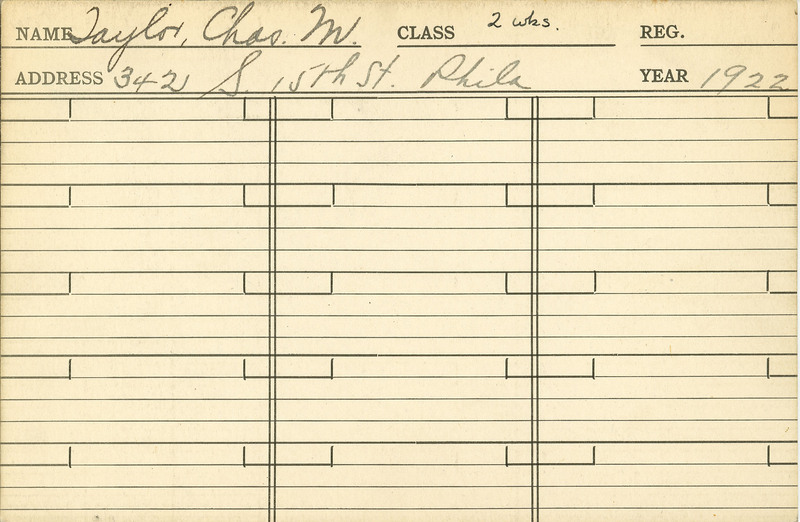 NAME Taylor, Chas. M. CLASS 2 wks. REG.
ADDRESS 342 S. 15th St. Phila YEAR 1922